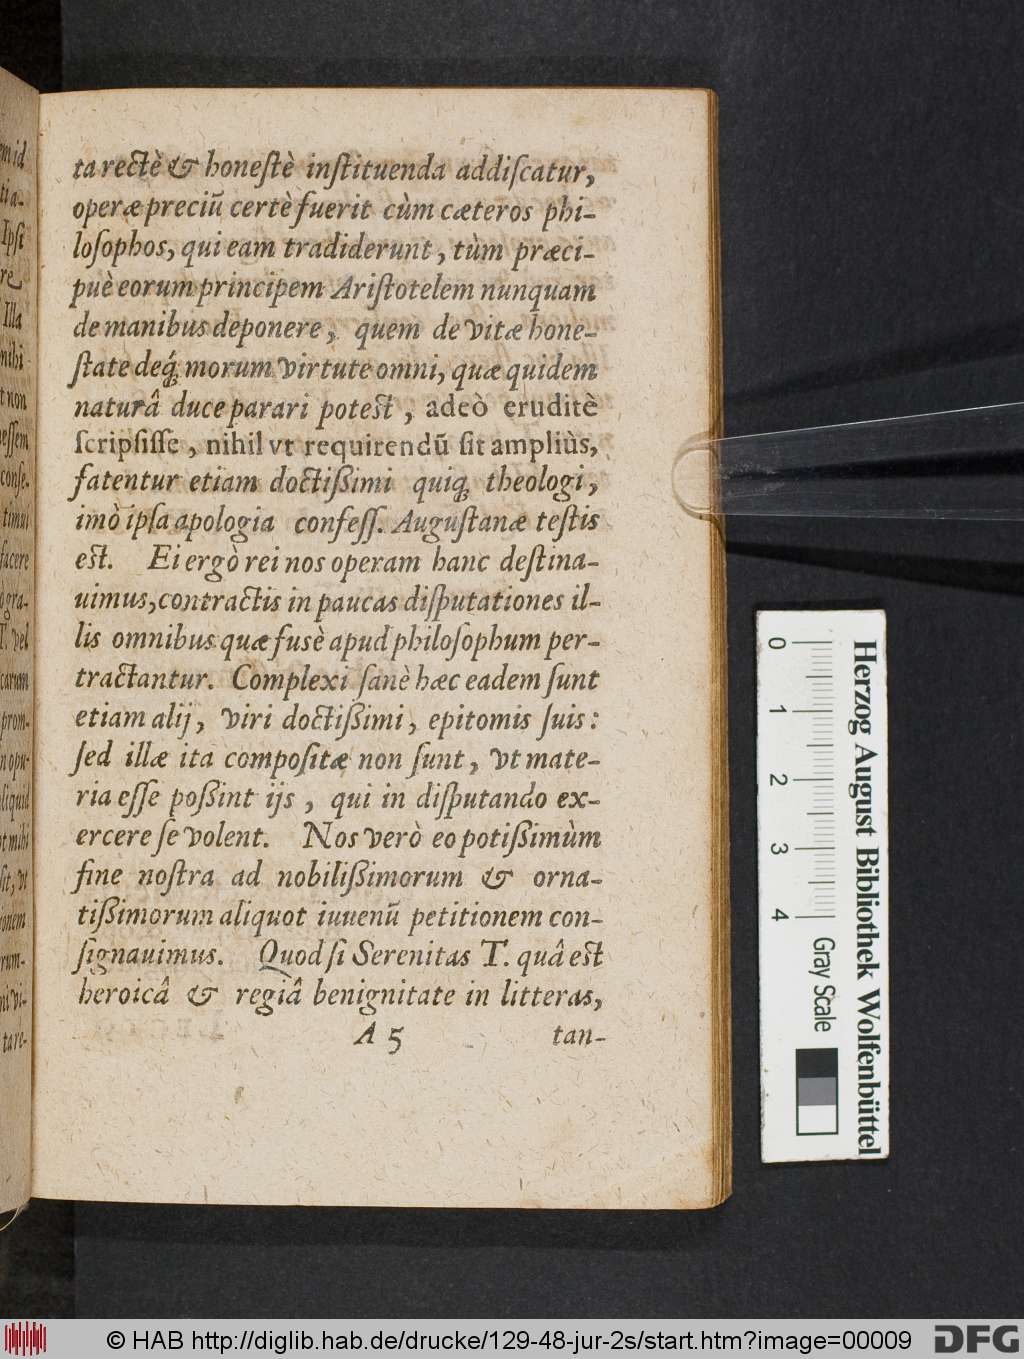 ta rectè & honestè instituenda addiscatur,
operæ preciū certè fuerit cùm cæteros phi-
losophos, qui eam tradiderunt, tùm præci-
puè eorum principem Aristotelem nunquam
de manibus deponere, quem de vitæ hone-
state deq́; morum virtute omni, quæ quidem
naturâ duce parari potest, adeò eruditè
scripsisse, nihil vt requirendū sit ampliùs,
fatentur etiam doctißimi quiq; theologi,
imò ipsa apologia confess. Augustanæ testis
est. Ei ergò rei nos operam hanc destina-
uimus, contractis in paucas disputationes il-
lis omnibus quæ fusè apud philosophum per-
tractantur. Complexi sanè hæc eadem sunt
etiam alij, viri doctißimi, epitomis suis:
sed illæ ita compositæ non sunt, vt mate-
ria esse poßint ijs, qui in disputando ex-
ercere se volent. Nos verò eo potißimùm
fine nostra ad nobilißimorum & orna-
tißimorum aliquot iuuenū petitionem con-
signauimus. Quod si Serenitas T. quâ est
heroicâ & regiâ benignitate in litteras,
A 5 tan-
m id
ti a-
Ipsi
re
Illa
mihi
t non
essem
conse-
timui
facere
ògra-
T. vel
carum
prom-
n opu-
liquid
t mihi
sit, vt
ionem
rum-
ni vi-
ta re-
0 1 2 3 4
Gray Scale
Herzog August Bibliothek Wolfenbüttel
© HAB http://diglib.hab.de/drucke/129-48-jur-2s/start.htm?image=00009
DFG